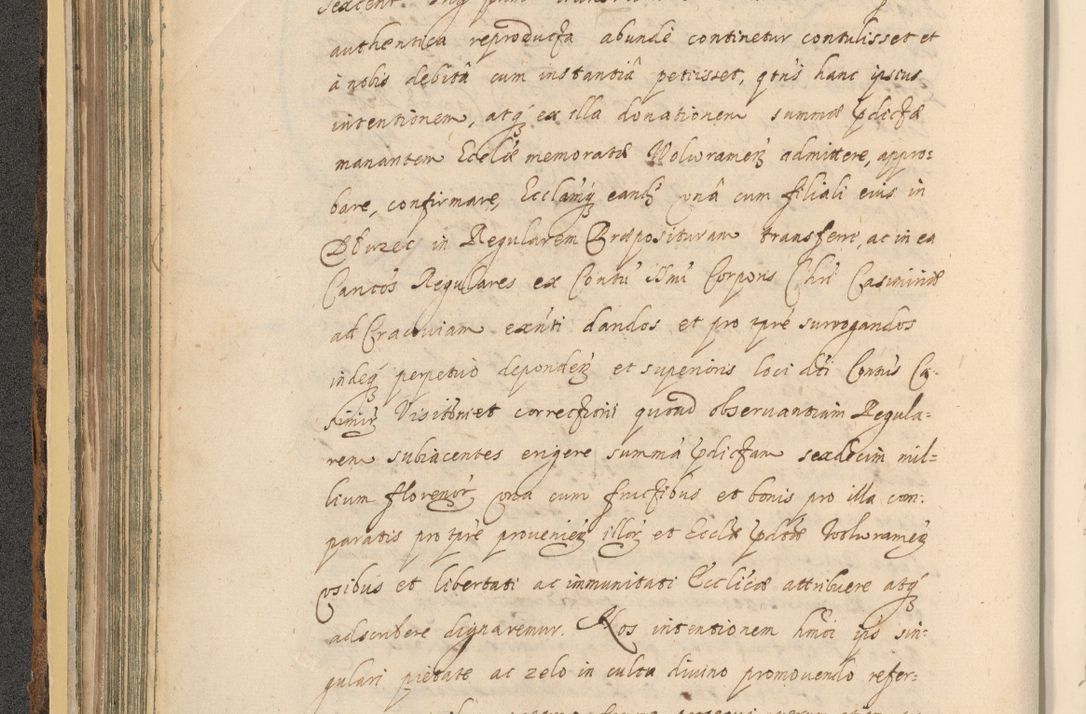 authentica reproducta abunde continetur contulisset et
à nobis debitâ cum instantiâ petiisset, qtnus hanc ipsius
intentionem, atq ex illa donationem summæ pdictæ
manantem Eccliæ memoratæ Wolwramen admittere, appro-
bare, confirmare, Ecclamq eand vnâ cum filiali eius in
Dłużec in Regularem Præposituram transferre, ac in ea
Canicos Regulares ex Contu issmi Corporis Chri Casimiriæ
ad Cracoviam exnti dandos et pro tpre surrogandos
indeq perpetuò depènden et superioris loci dti Contus Ca-
simir Visitôni et correctioni quoad observantiam Regula-
rem subiacentes erigere summâ pdictam sexdecim mil-
lium florenor vna cum fructibus et bonis pro illa com-
paratis pro tpre provenien illor et Eccliæ pdtæ Wolwramen
vsibus et libertati ac immunitati Ecclicæ attribuere atq
adscribere dignaremur. Nos intentionem hmoi ipsius sin-
gulari pietate ac zelo in cultu divino promovendo refer-